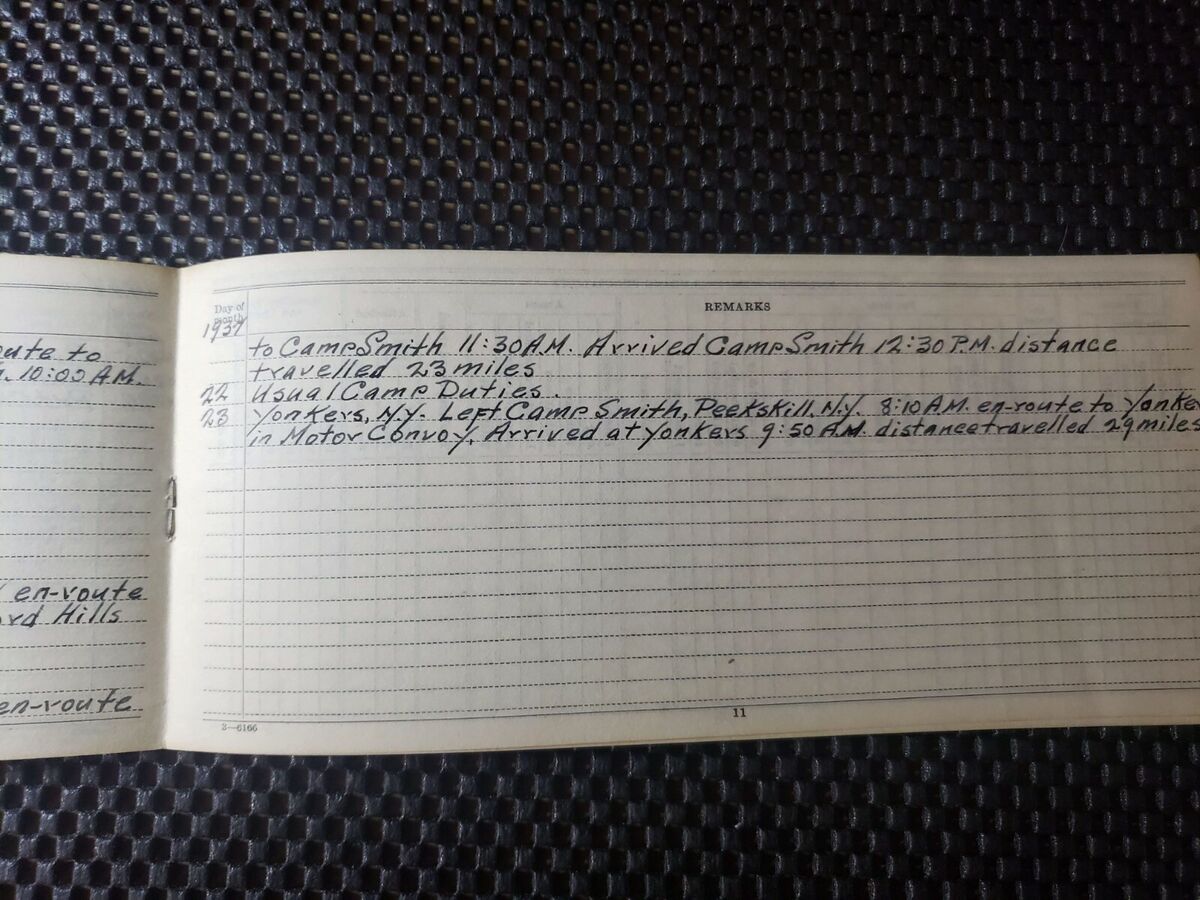 oute to
10:00 A.M.
en-route
rd Hills
en-route
Day of month
REMARKS
1937
to Camp Smith 11:30 A.M. Arrived Camp Smith 12:30 P.M. distance
travelled 23 miles
22 Usual Camp Duties.
23 Yonkers, N.Y. Left Camp Smith, Peekskill, N.Y. 8:10 A.M. en-route to Yonke
in Motor Convoy, Arrived at Yonkers 9:50 A.M. distance travelled 29 miles
3—6166
11